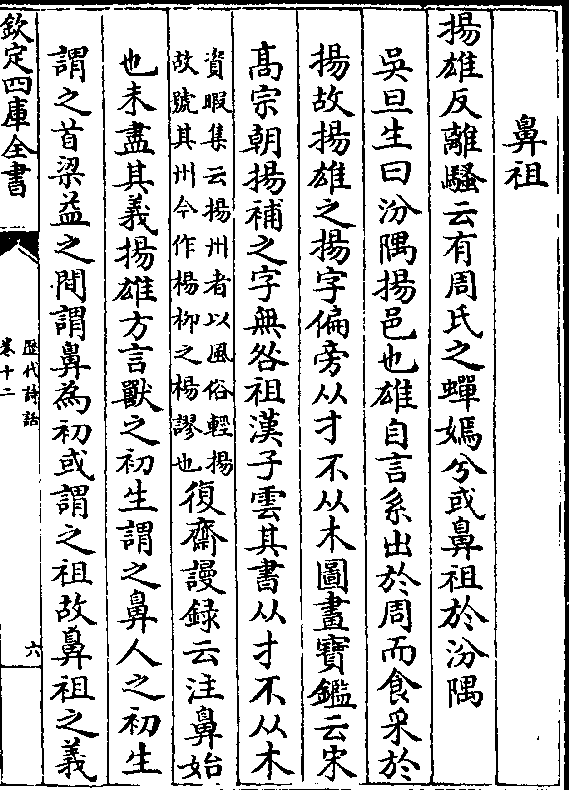 鼻祖
揚雄反離騷云有周氏之蟬嫣兮或鼻祖於汾隅
吳旦生曰汾隅揚邑也雄自言系出於周而食采於
揚故揚雄之揚字偏旁从才不从木圖畫寶鑑云宋
髙宗朝揚補之字無咎祖漢子雲其書从才不从木
資暇集云揚州者以風俗輕揚
故號其州今作楊柳之楊謬也
復齋謾録云注鼻始
也未盡其義揚雄方言獸之初生謂之鼻人之初生
謂之首梁益之間謂鼻為初或謂之祖故鼻祖之義
欽定四庫全書
歴代詩話
卷十二
六